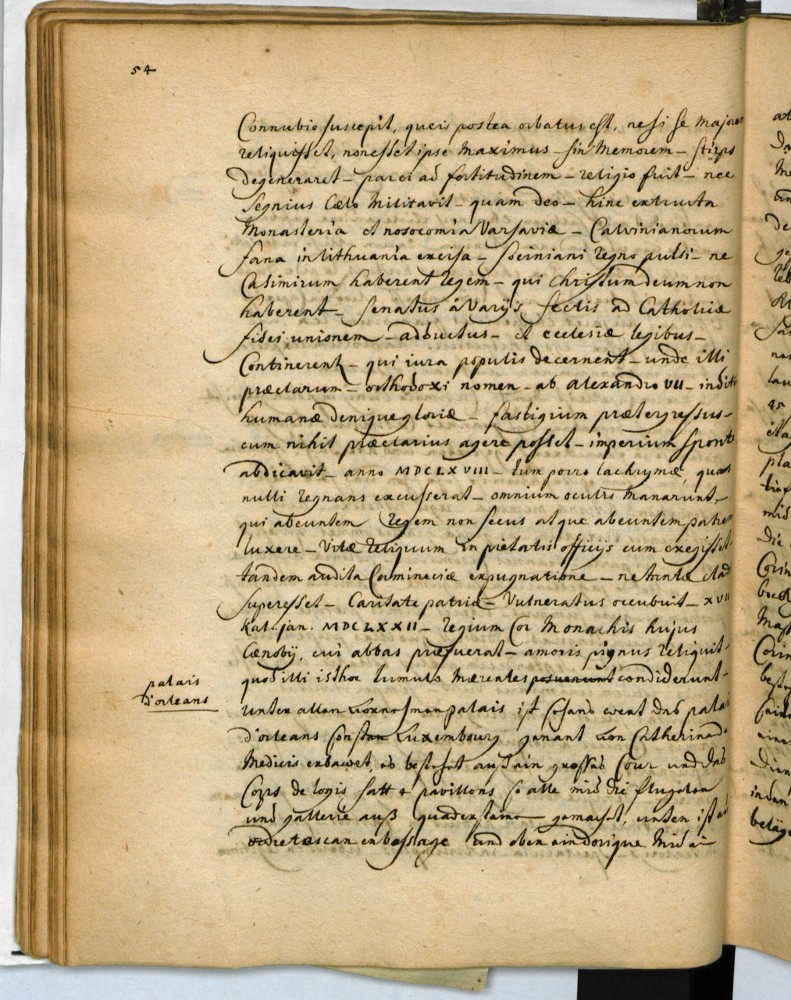 54
Connubio suscepit, queis postea orbatus est, ne si se majorem
reliquisset, non esset ipse Maximus – sin Memorem – stirps
degeneraret – par ei ad fortitudinem – religio fuit – nec
segnius Cælo Militavit – quam deo – hinc extructa
Monasteria et nosocomia Varsaviæ – Calvinianorum
fana in lithuania excisa – sociniani regno pulsi – ne
Casimirum haberent regem – qui christum deum non
haberent – senatus à Varijs sectis ad Catholicæ
fidei unionem – adductus – et ecclesiæ legibus –
Continerent – qui iura populis decernent – unde illi
præclarum – orthodoxi nomen – ab alexandro VII – inditum
humanæ denique gloriæ – fastigium prætergressus –
cum nihil præclarius agere posset – imperium sponte
abdicavit – anno MDCLXVIII – tum porro lachrymæ quas
nulli regnans excusserat – omnium oculis Manarunt –
qui abeuntem Regem non secus atque abeuntem patrem
luxere – Vitæ reliquum in pietatis officijs cum exegisset
tandem audita Cameneciæ expugnatione – ne tantæ cladi
superesset – Caritate patriæ – Vulneratus occubuit – XVII
Kal. jan. MDCLXXII – regium Cor Monachis hujus
Cænobij, cui abbas præfuerat – amoris pignus reliquit –
quod illi isthoc tumulo Mærentes condiderunt –
palais
d'orleans
unter allen palais ist das palais
d'orleans sonsten Luxembourg genant von Catherina de
Medicis erbawet, es bestehet auß ain großen Cour und das
Corps de logis hatt 4 pavillons so alle mit die flugelen
und gallerie auß quaderstaine gemacht, unten ist
toscan und oben ain dorique